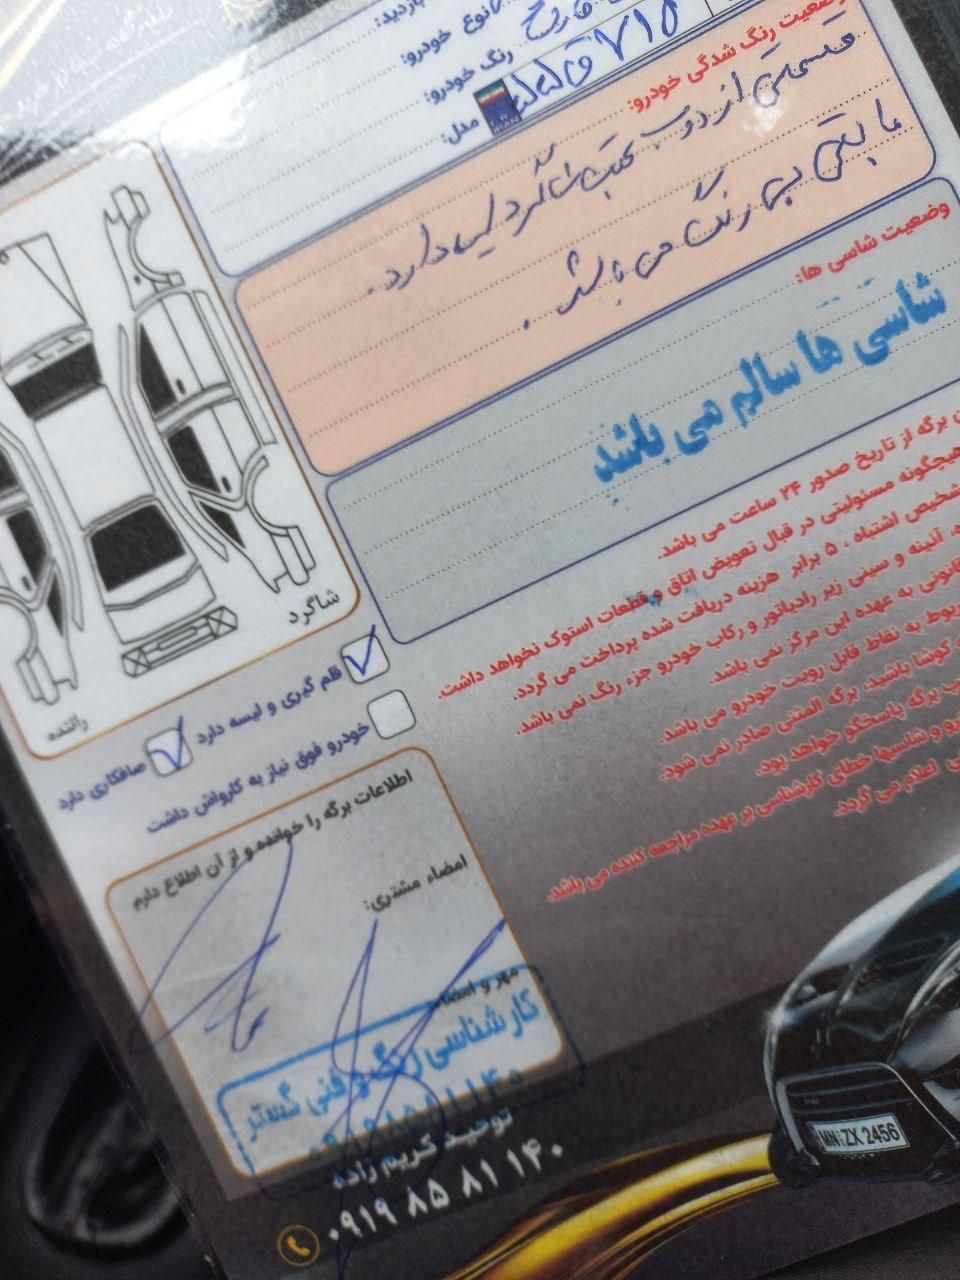 بازدید:
نوع خودرو:
رنگ خودرو:
مدل:
IRAN
وضعیت رنگ شدگی خودرو:
قسمتی از درب عقب شاگرد لیسه دارد.
مابقی بی رنگ می باشد.
وضعیت شاسی ها:
شاسی ها سالم می باشد
برگه از تاریخ صدور ۲۴ ساعت می باشد.
هیچگونه مسئولیتی در قبال تعویض اتاق و قطعات استوک نخواهد داشت.
تشخیص اشتباه ، ۵ برابر هزینه دریافت شده پرداخت می گردد.
آئینه و سینی زیر رادیاتور و رکاب خودرو جزء رنگ نمی باشد.
قانونی به عهده این مرکز نمی باشد
مربوط به نقاط قابل رویت خودرو می باشد.
کوشا باشید، برگه المثنی صادر نمی شود.
برگه پاسخگو خواهد بود.
و شاسیها خطای کارشناسی بر عهده مراجعه کننده می باشد.
اعلام می گردد.
شاگرد
راننده
قلم گیری و لیسه دارد
صافکاری دارد
خودرو فوق نیاز به کارواش داشت
اطلاعات برگه را خوانده و از آن اطلاع دارم
امضاء مشتری:
مهر و امضاء
کارشناسی رنگ و فنی گستر
توحید کریم زاده
۰۹۱۹ ۸۵ ۸۱ ۱۴۰
MN ZX 2456